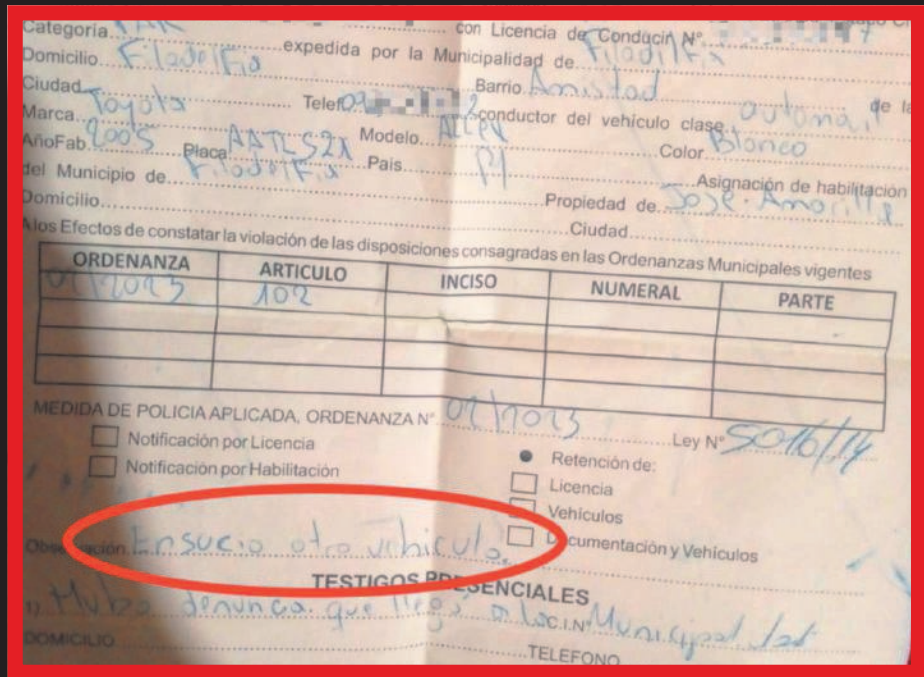 Categoría PAR con Licencia de Conducir N°
Domicilio Filadelfia expedida por la Municipalidad de Filadilfia
Ciudad Telef. Barrio Amistad de la
Marca Toyota Modelo conductor del vehículo clase automa
AñoFab. 2005 Placa Pais Color Blanco
del Municipio de Filadelfia Asignación de habilitación
Domicilio Propiedad de Jose Amarilla
Ciudad
A los Efectos de constatar la violación de las disposiciones consagradas en las Ordenanzas Municipales vigentes
ORDENANZA ARTICULO INCISO NUMERAL PARTE
07/2023 102
MEDIDA DE POLICIA APLICADA, ORDENANZA N° 07/2023 Ley N° 5016/14
Notificación por Licencia Retención de:
Notificación por Habilitación Licencia
Vehículos
Documentación y Vehículos
Observación. Ensucio otro vehiculo.
TESTIGOS PRESENCIALES
1) Hubo denunca que llego a la C.I.N° Municipalidad
DOMICILIO TELEFONO